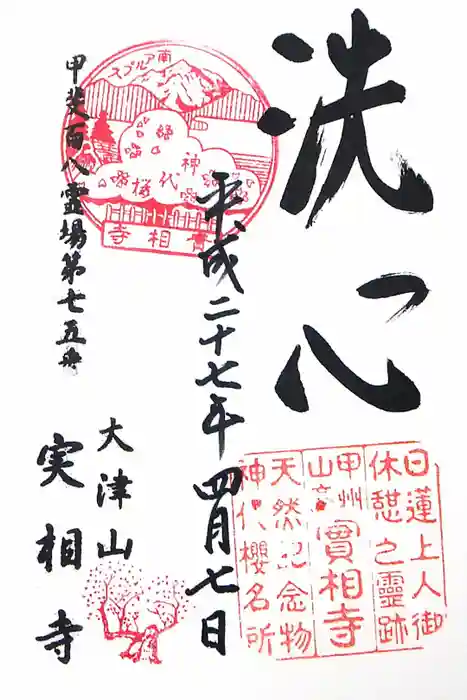 洗心
平成二十七年四月七日
甲斐百八霊場第七五番
大津山
実相寺
南アルプス
神代桜
實相寺
日蓮上人御
休憩之靈跡
甲州
山高
實相寺
天然紀念物
神代櫻名所